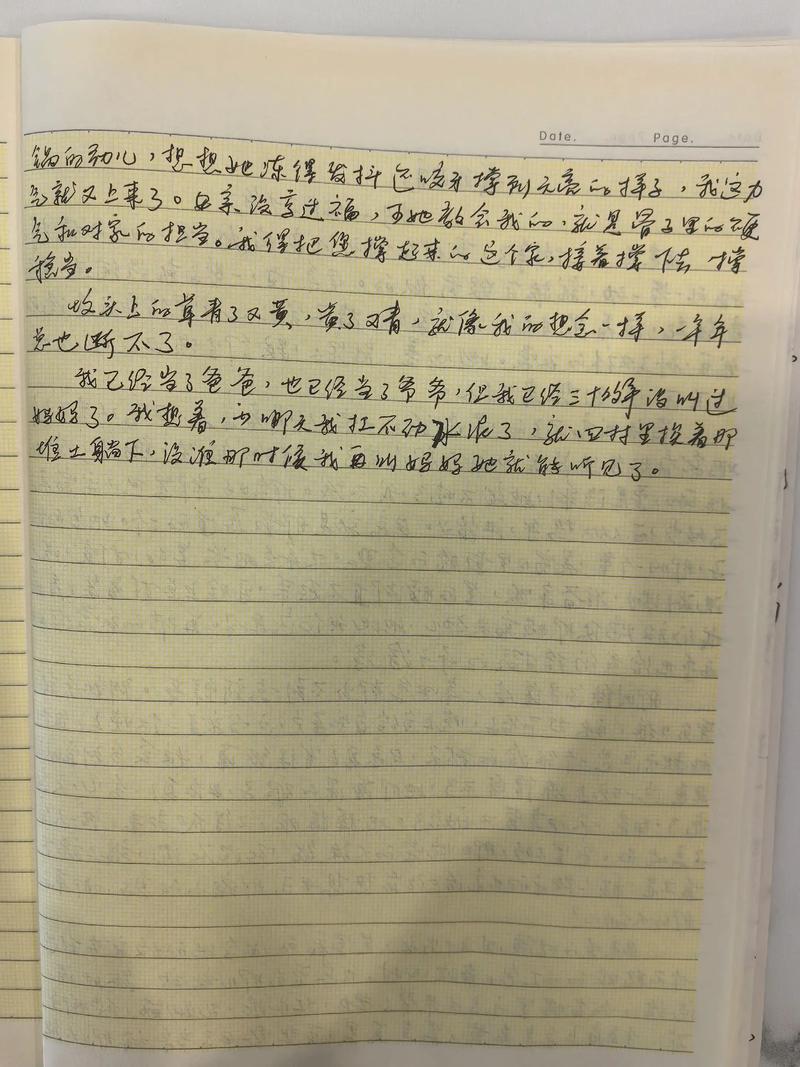 Date. Page.
锅的劲儿，想想她冻得发抖还咬牙撑到天亮的样子，我这力
气就又上来了。母亲没享过福，可她教会我的，就是骨子里的硬
气和对家的担当。我得把您撑起来的这个家，接着撑下去 撑
稳当。
坟头上的草青了又黄，黄了又青，就像我的想念一样，一年年
总也断不了。
我已经当了爸爸，也已经当了爷爷，但我已经三十多年没叫过
妈妈了。我想着，哪天我扛不动水泥了，就回村里挨着那
堆土躺下，没准那时候我再叫妈妈她就能听见了。